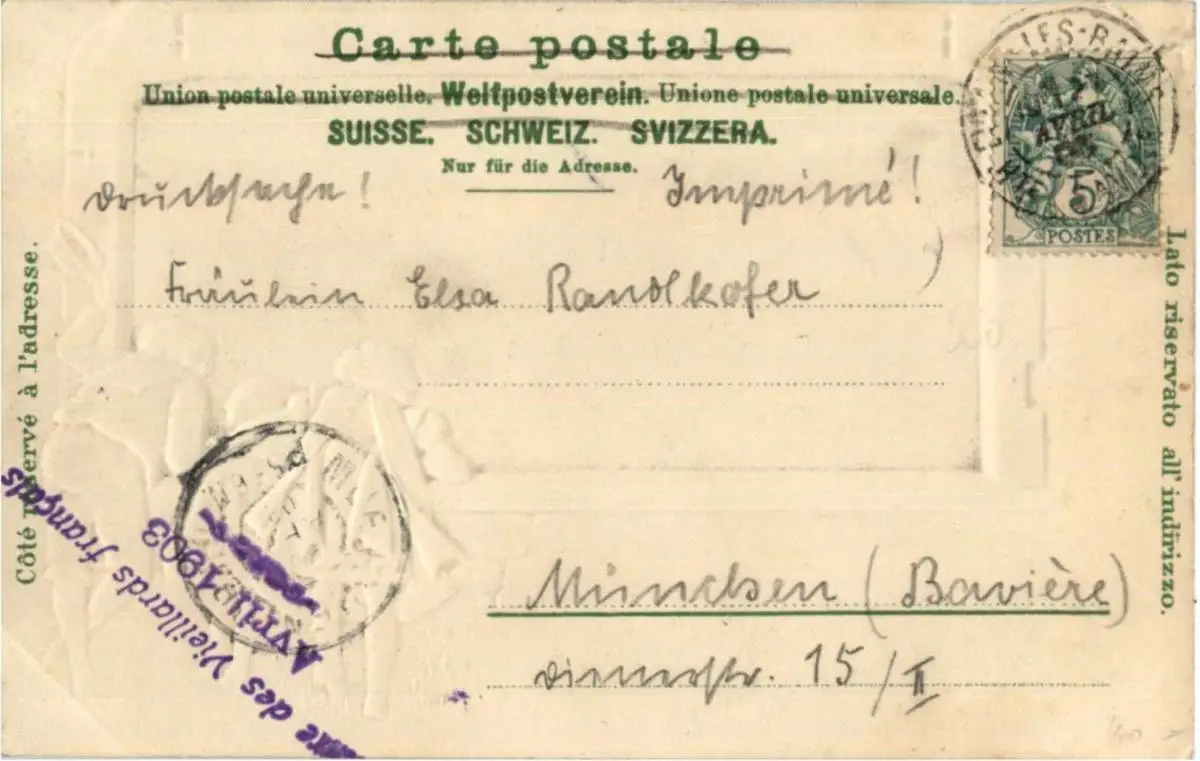 Carte postale
Union postale universelle. Weltpostverein. Unione postale universale.
SUISSE. SCHWEIZ. SVIZZERA.
Nur für die Adresse.
Drucksache! Imprimé!
Fräulein Elsa Randlkofer
München (Bavière)
Dienerstr. 15/II
Côté réservé à l'adresse.
Lato riservato all'indirizzo.
LES-BAINS
AVRIL
5
POSTES
des Vieillards français
Avril 1903